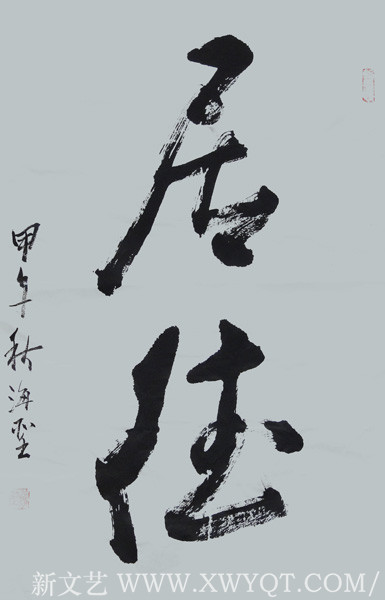 居德
甲午秋海
新文艺 WWW.XWYQT.COM/